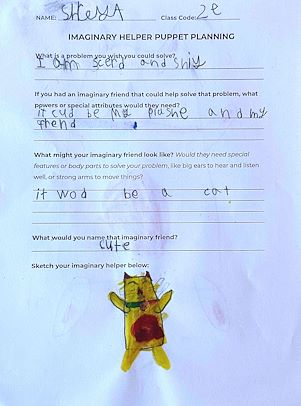 NAME: Class Code: 2e
IMAGINARY HELPER PUPPET PLANNING
What is a problem you wish you could solve?
I am scerd and shiy
If you had an imaginary friend that could help solve that problem, what
powers or special attributes would they need?
it cud be my and my
frend
What might your imaginary friend look like? Would they need special
features or body parts to solve your problem, like big ears to hear and listen
well, or strong arms to move things?
it wod be a cat
What would you name that imaginary friend?
cute
Sketch your imaginary helper below: